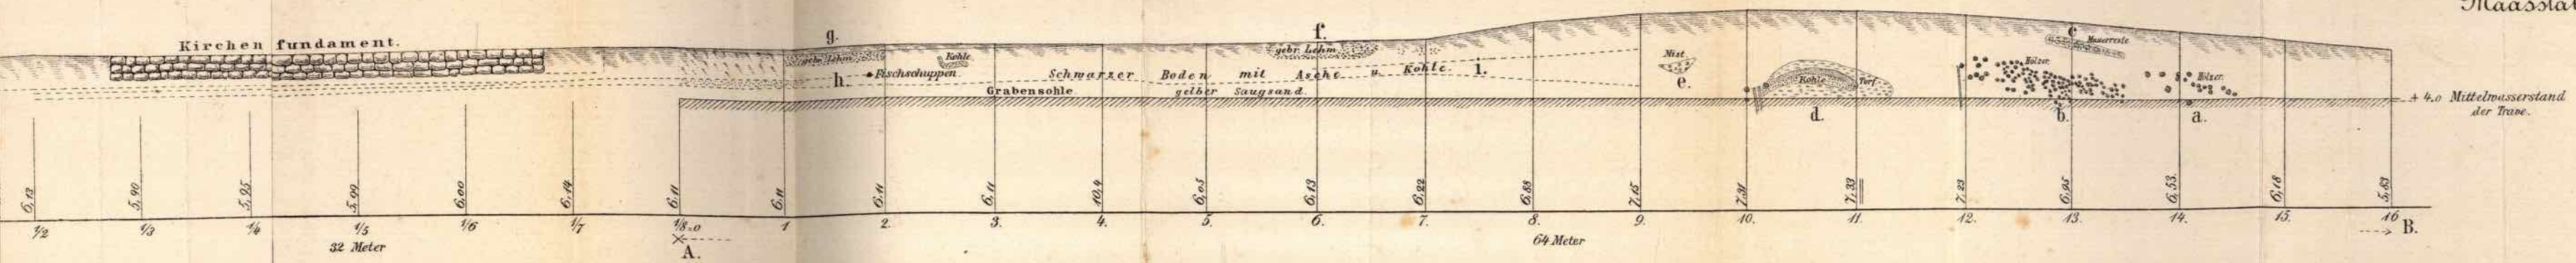 Kirchenfundament.
g.
gebr. Lehm
h.
Fischschuppen
Kohle
Grabensohle
f.
gebr. Lehm
Schwarzer Boden mit Asche u. Kohle.
gelber Saugsand.
i.
Mist
e.
Kohle
Torf
d.
c
Mauerreste
Hölzer
b.
Hölzer.
a.
+ 4.0 Mittelwasserstand
der Trave.
6,13 5,90 5,95 5,99 6,00 6,14 6,11 6,11 6,11 6,11 10,4 6,05 6,13 6,22 6,88 7,15 7,31 7,33 7,23 6,95 6,53. 6,18 5,83
1/2 1/3 1/4 1/5 1/6 1/7 1/8=0 1 2. 3. 4. 5. 6. 7. 8. 9. 10. 11. 12. 13. 14. 15. 16
32 Meter
64 Meter
A.
B.